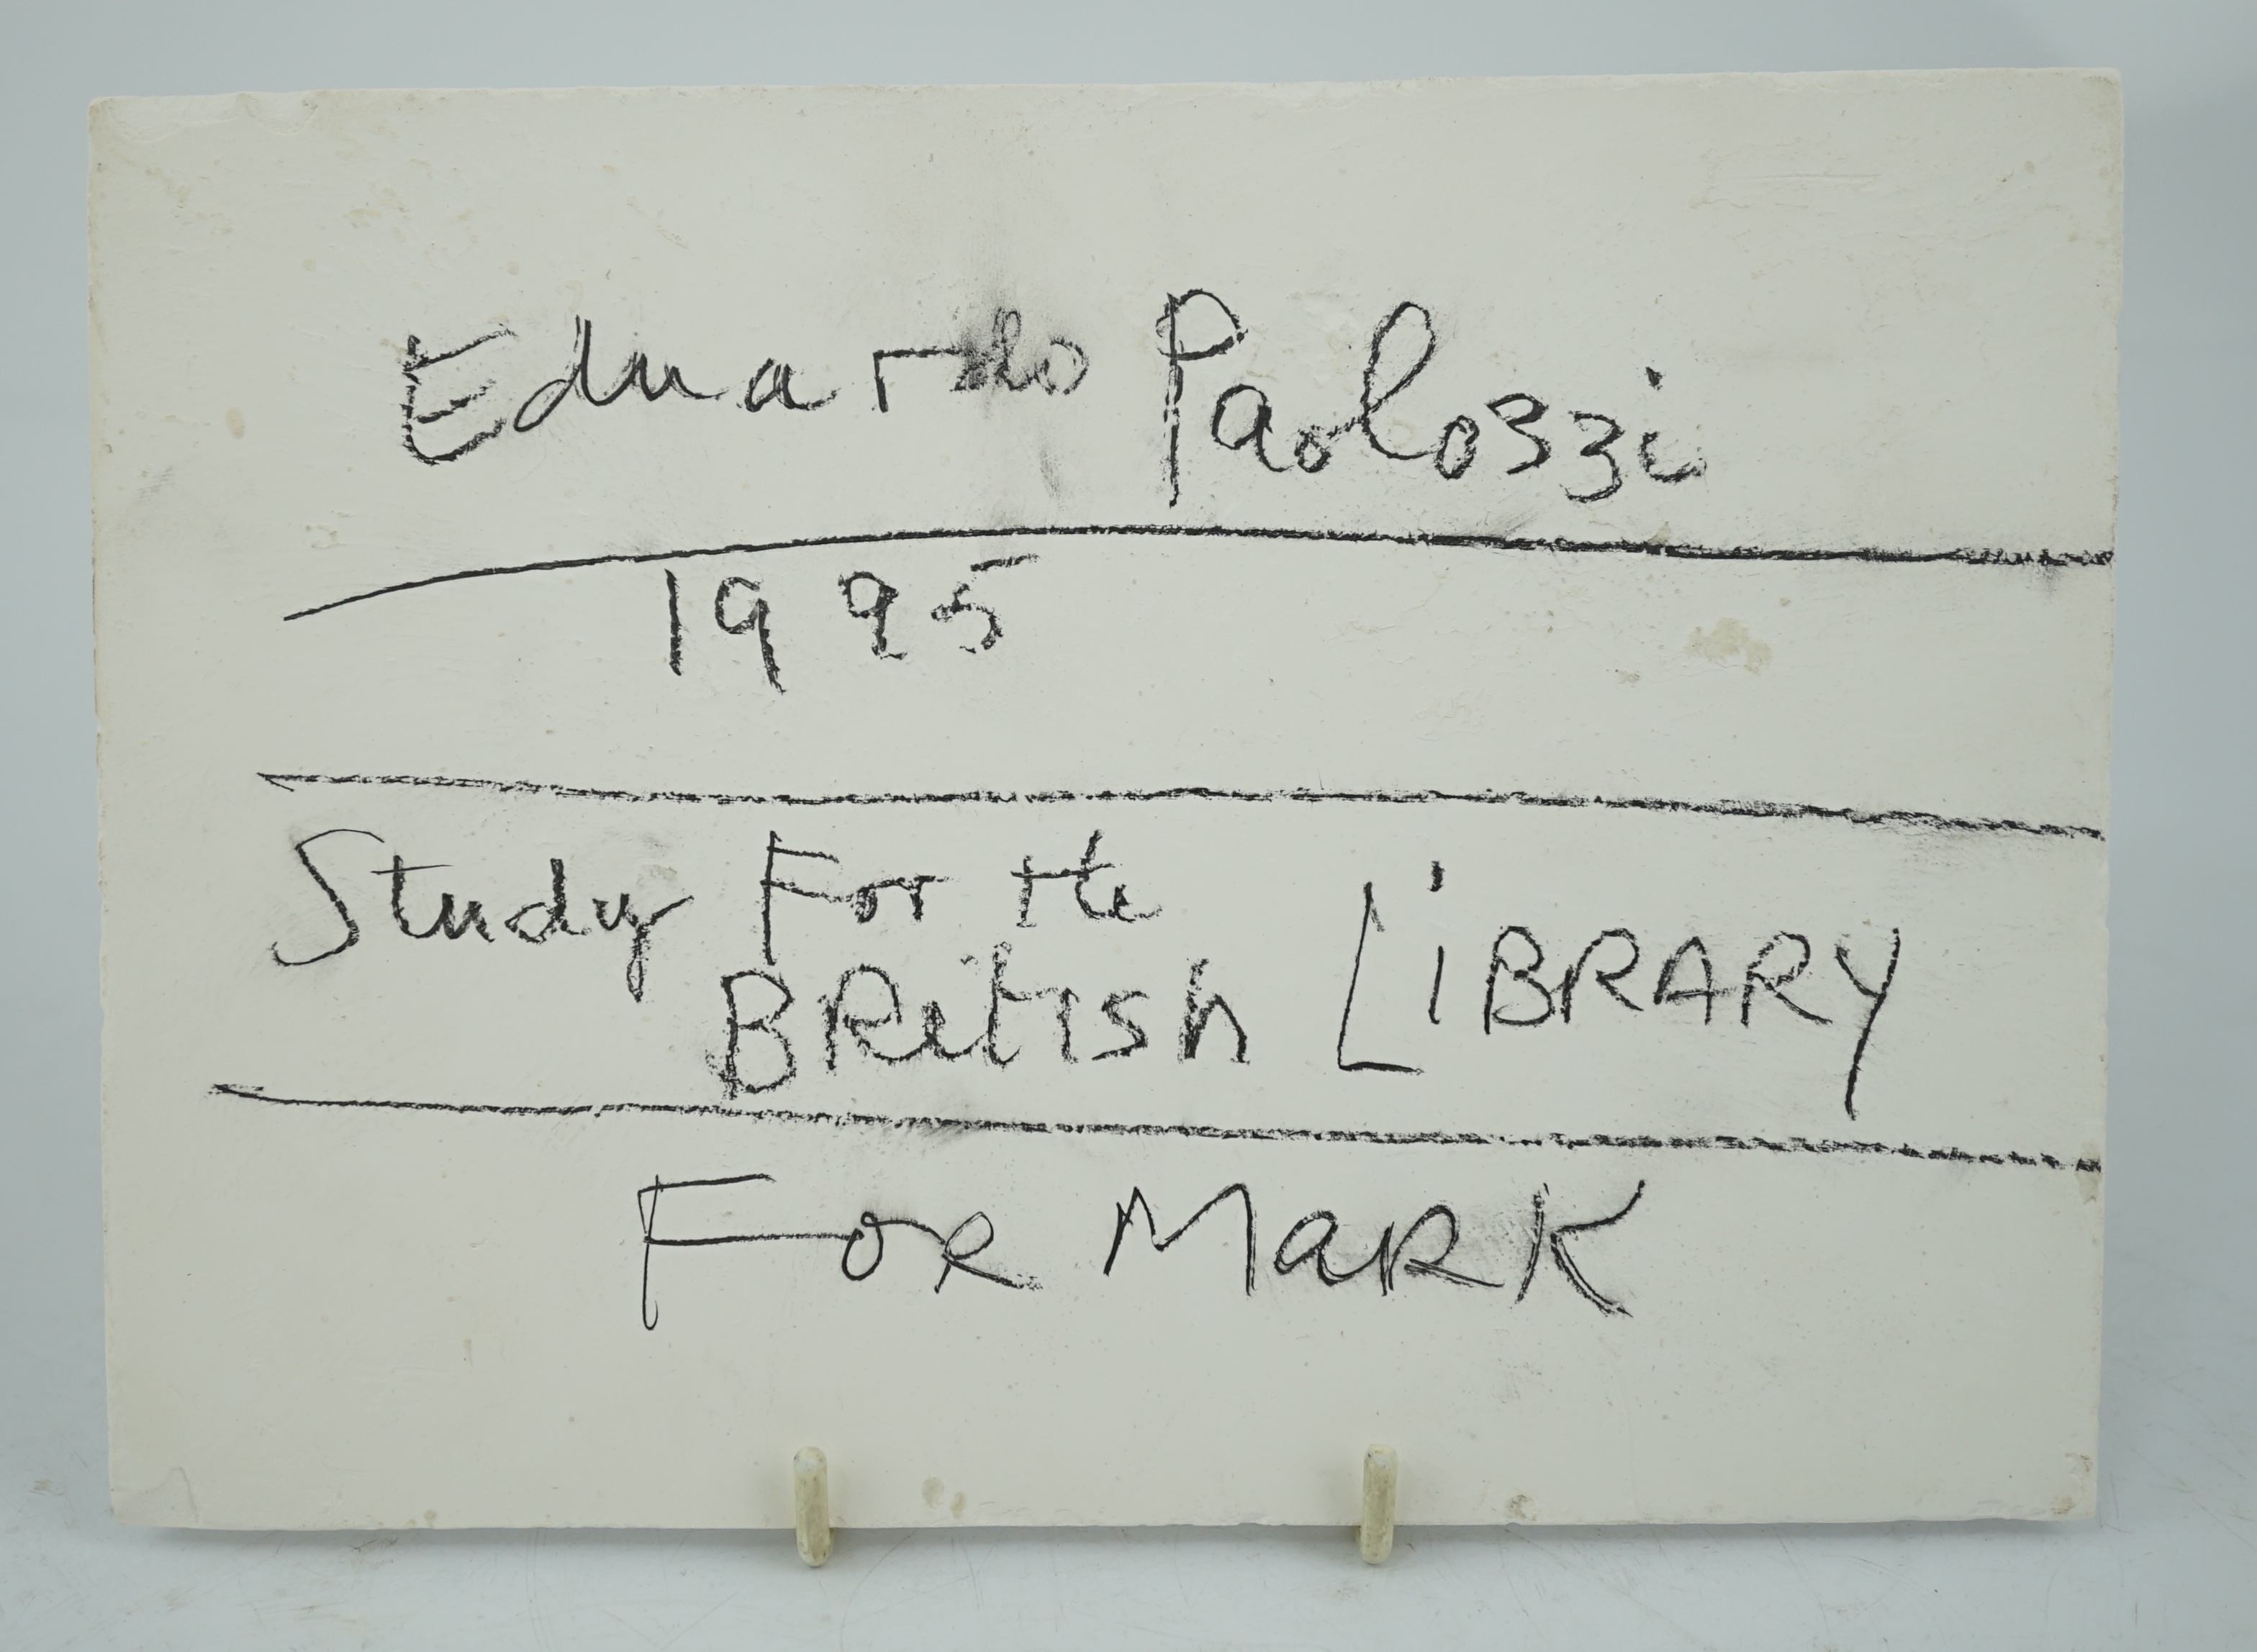 Eduardo Paolozzi
1995
Study For the
British LiBRARY
FoR MaRK